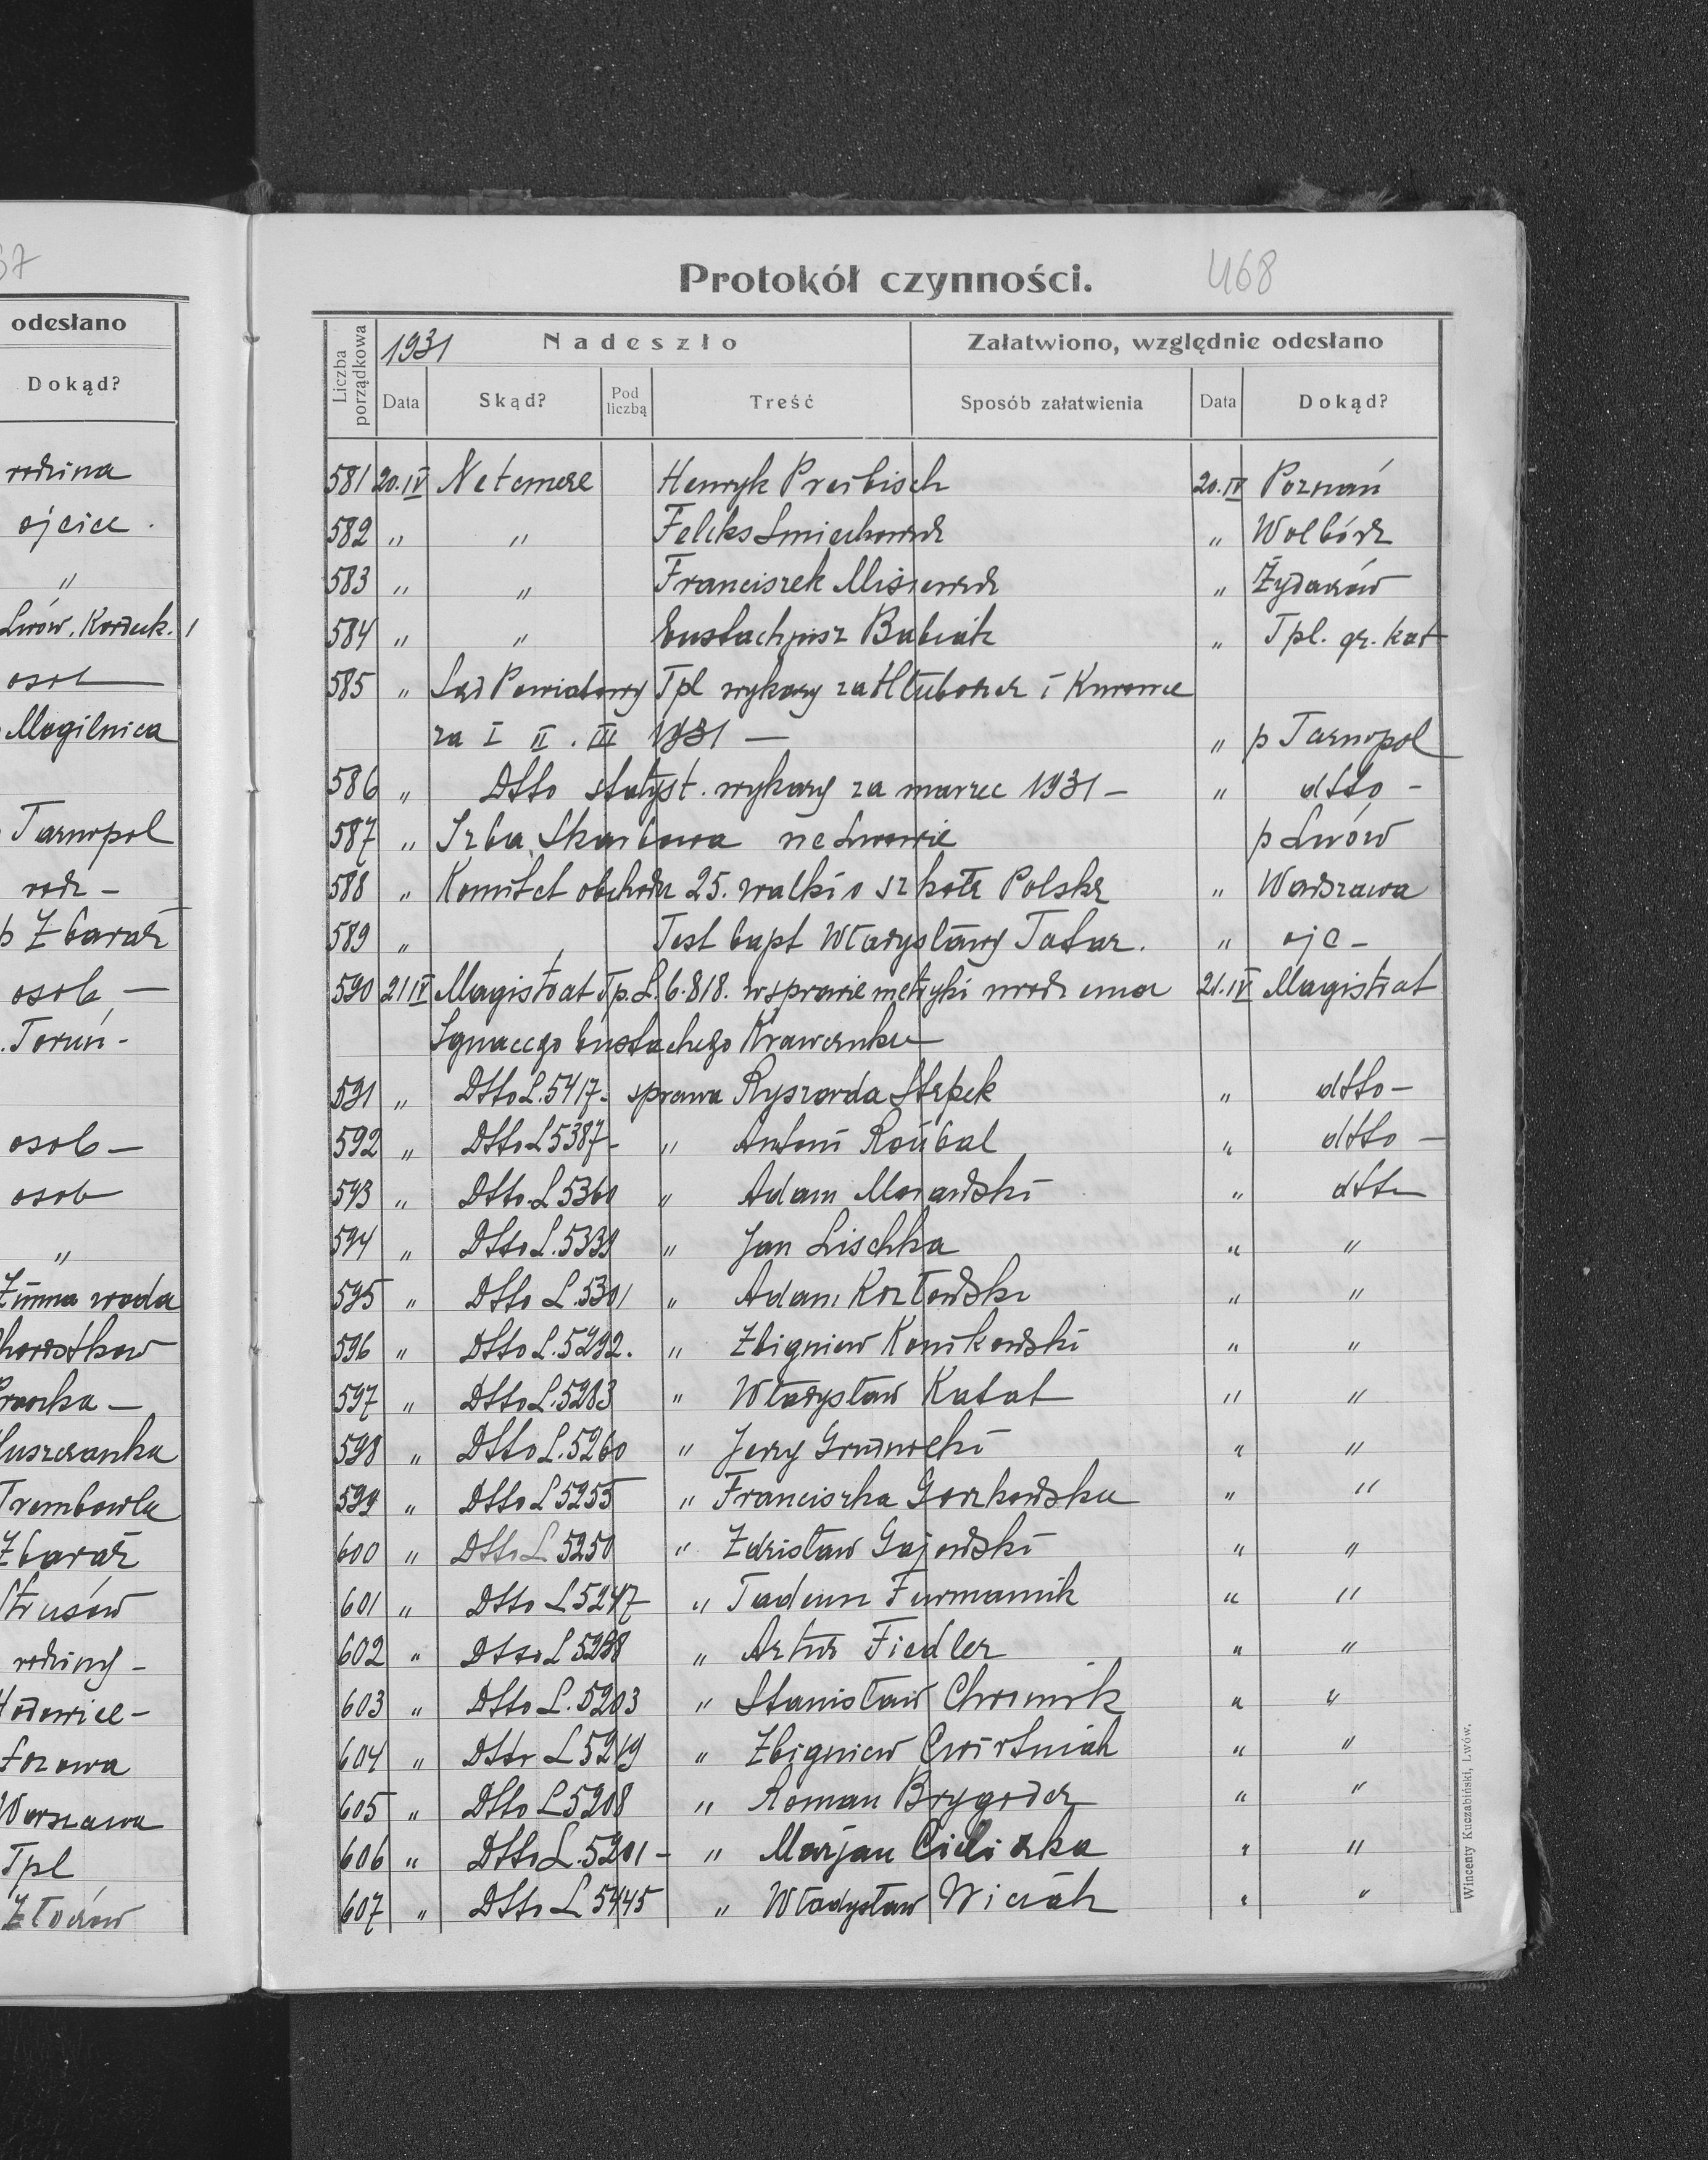 37
odesłano
Dokąd?
rodzina
ojciec.
"
Lwów.
osob
Mogilnica
Tarnopol
rodz -
p Zbaraż
osob -
Toruń -
osob -
osob
"
Zimna woda
Trembowla
Zbaraż
Strusów
rodziny -
Warszawa
Tpl
Złoczów
Protokół czynności. 468
Liczba porządkowa 1931 Nadeszło Załatwiono, względnie odesłano
Data Skąd? Pod liczbą Treść Sposób załatwienia Data Dokąd?
581 20.IV Ne temere Henryk Preibisch 20.IV Poznań
582 " " Feliks " Wolbórz
583 " " Franciszek " Żydaczów
584 " " Eustachjusz Babiak " Tpl. gr. kat
585 " Sąd Powiatowy Tpl wykazy za i
za I II . III 1931 — " p Tarnopol
586 " Dtto statyst. wykazy za marzec 1931 – " dtto -
587 " Izba Skarbowa we Lwowie p Lwów
588 " Komitet obchodu 25. walki o szkołę Polską " Warszawa
589 " Test bapt Władysławy Tatar. " ojc -
590 21 IV Magistrat Tp. L. 6.818. w sprawie metryki urodzenia 21.IV Magistrat
Ignacego Eustachego
591 " Dtto L. 5417 - sprawa Ryszarda Stępek " dtto -
592 " Dtto L 5387 - " Antoni Roubal " dtto -
593 " Dtto L 5360 " Adam Morawski " dtto
594 " Dtto L. 5339 " Jan Lischka " "
595 " Dtto L. 5301 " Adam Kozłowski " "
596 " Dtto L. 5292. " Zbigniew Konikowski " "
597 " Dtto L. 5283 " Władysław Katat " "
598 " Dtto L. 5260 " Jerzy " "
599 " Dtto L 5255 " Franciszka Gorzkowska " "
600 " Dtto L 5250 " Zdzisław Gajewski " "
601 " Dtto L 5247 " Tadeusz Furmannik " "
602 " Dtto L " Artur Fiedler " "
603 " Dtto L. 5203 " Stanisław " "
604 " Dtto L 5219 " Zbigniew Ćwirtniak " "
605 " Dtto L 5208 " Roman Brygider " "
606 " Dtto L. 5201 - " Marjan " "
607 " Dtto L 5445 " Władysław " "
Wincenty Kuczabiński, Lwów.